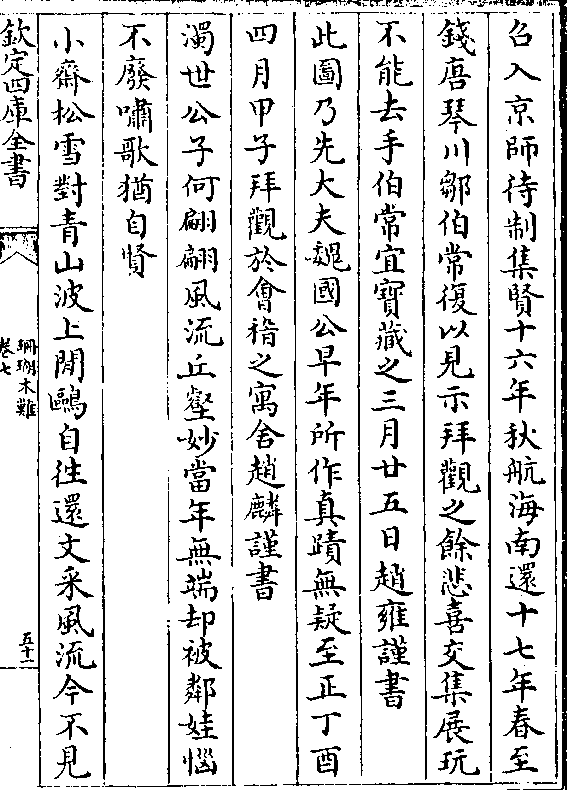 召入京師待制集賢十六年秋航海南還十七年春至
錢唐琴川鄒伯常復以見示拜觀之餘悲喜交集展玩
不能去手伯常宜寳藏之三月廿五日趙雍謹書
此圖乃先大夫魏國公早年所作真蹟無疑至正丁酉
四月甲子拜觀於會稽之寓舍趙麟謹書
濁世公子何翩翩風流丘壑妙當年無端却被鄰娃惱
不廢嘯歌猶自賢
小齋松雪對青山波上閒鷗自徃還文采風流今不見
欽定四庫全書
珊瑚木難
卷七
五十一